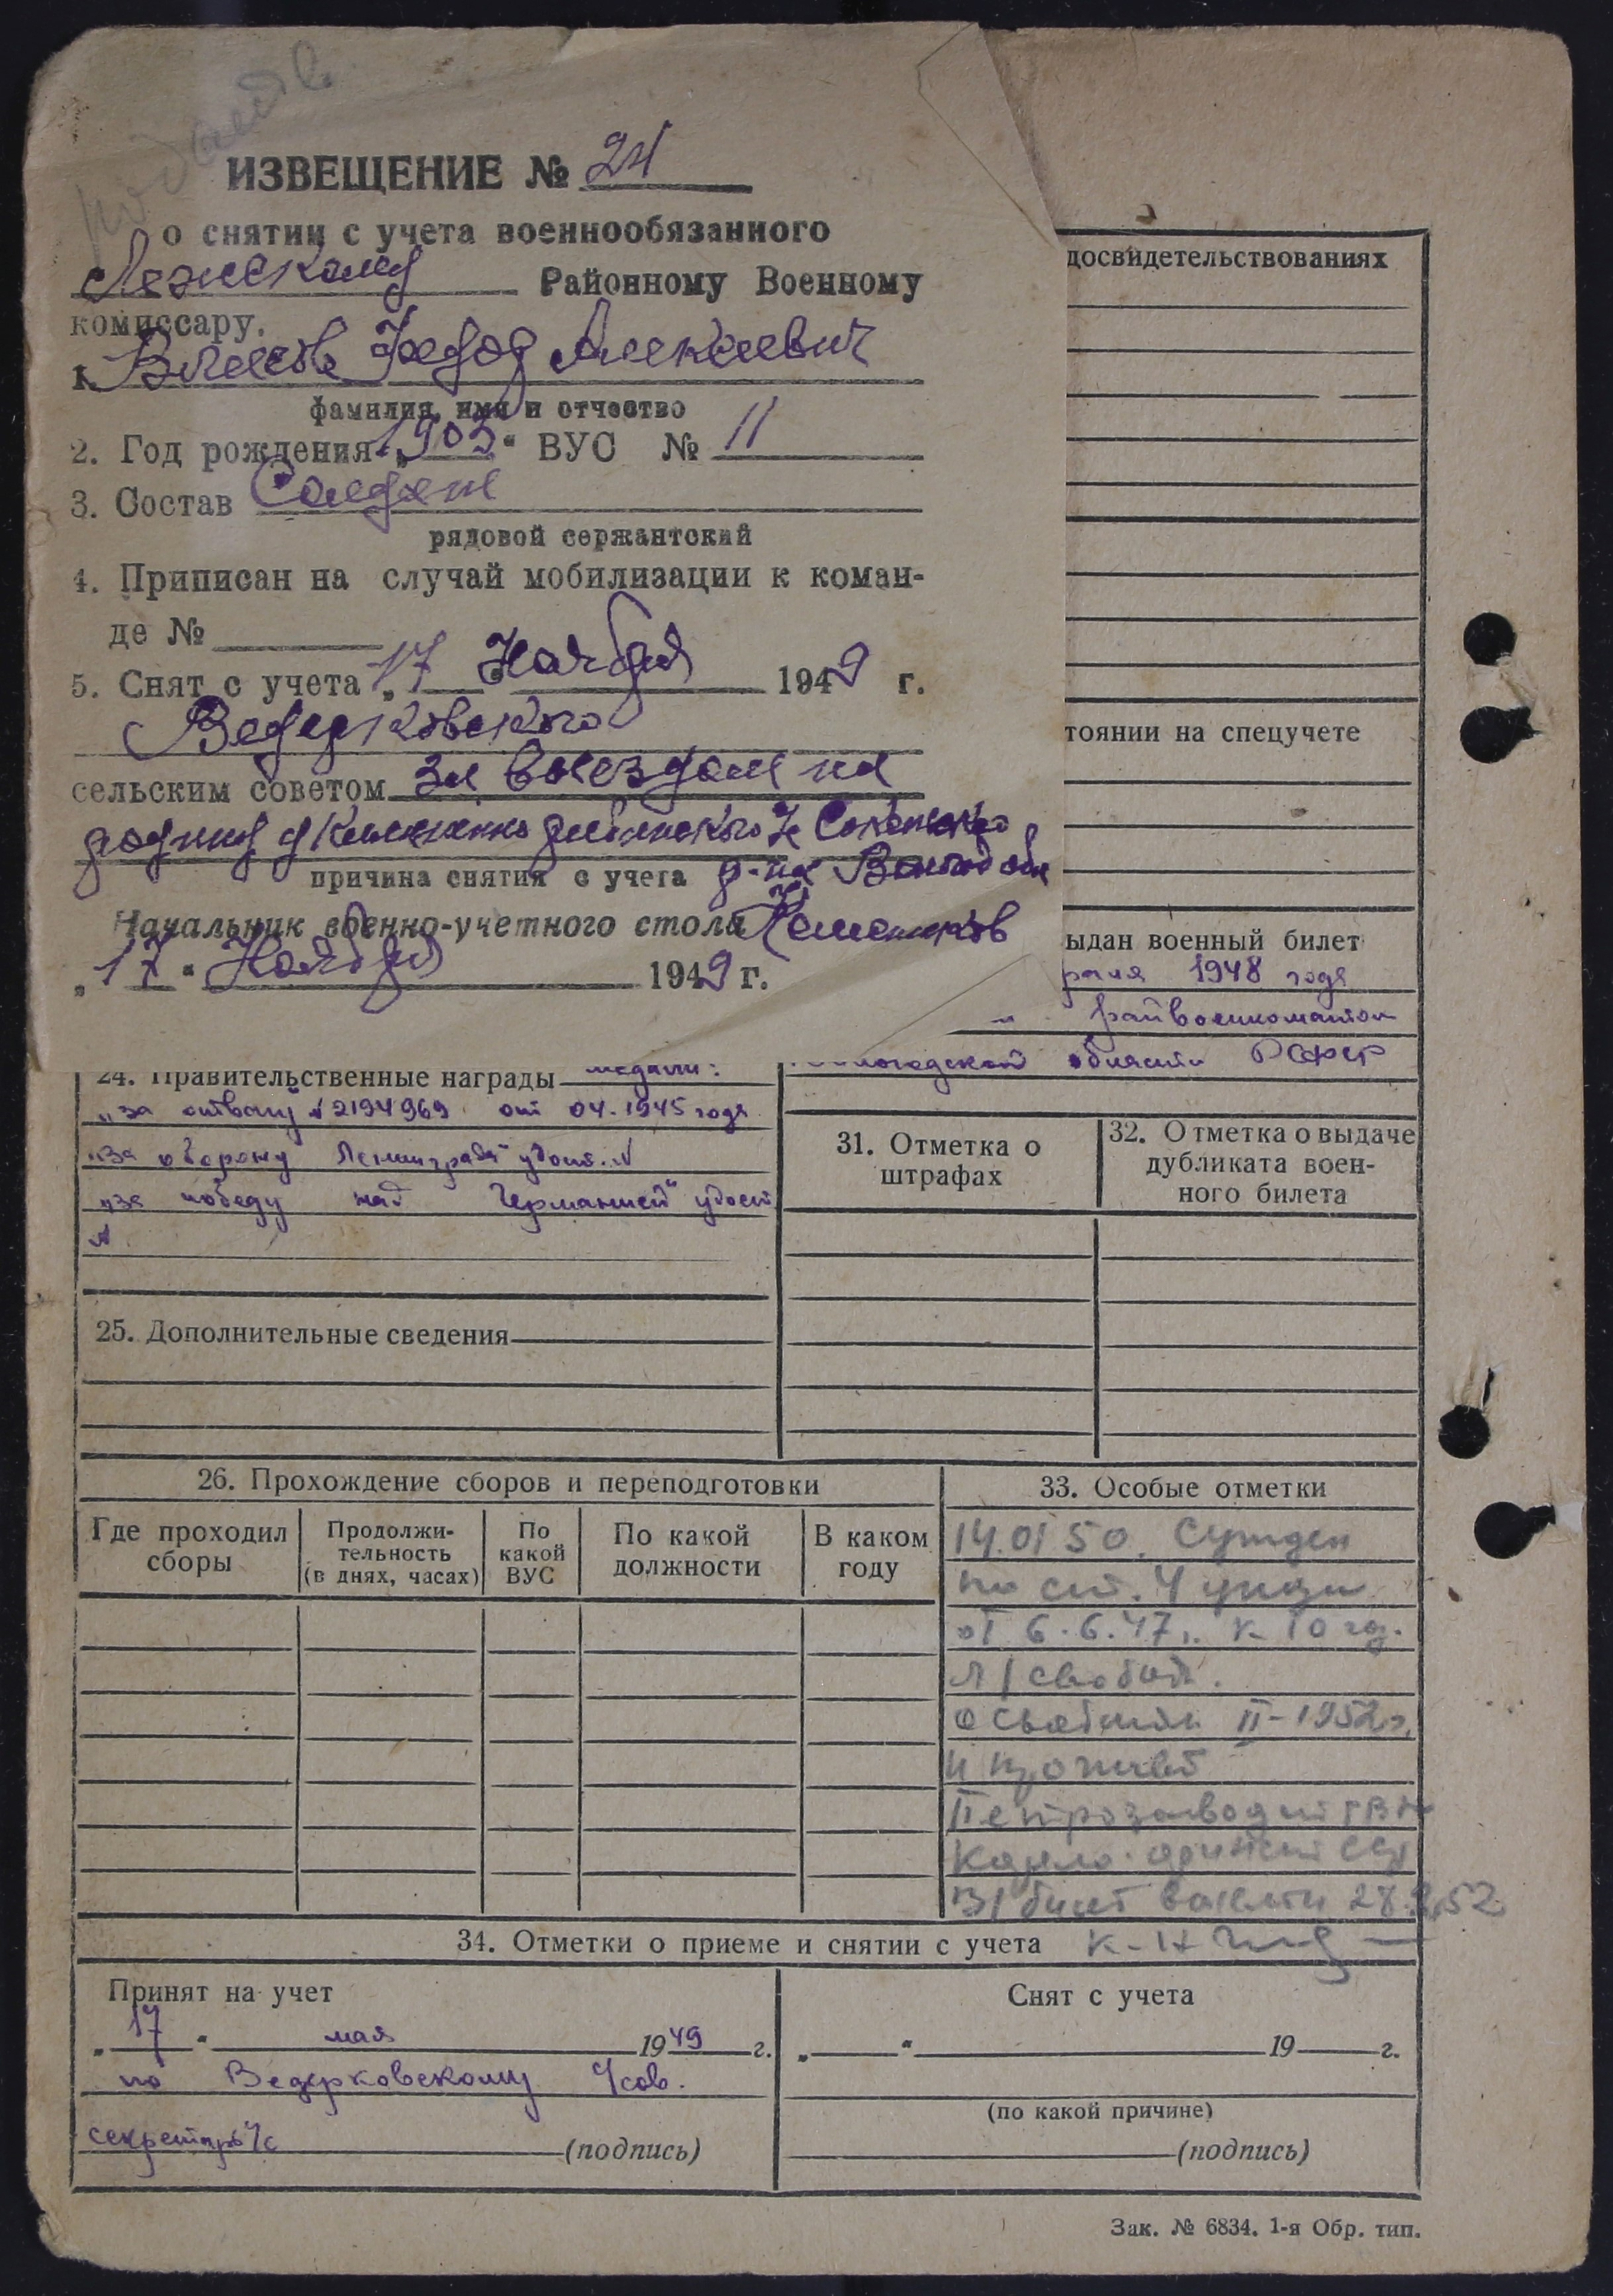 ИЗВЕЩЕНИЕ № 24
о снятии с учета военнообязанного
Лежскому Районному Военному
комиссару.
1. Власов Федор Алексеевич
фамилия, имя и отчество
2. Год рождения „1903“ ВУС № 11
3. Состав Солдат
рядовой сержантский
4. Приписан на случай мобилизации к коман-
де №
5. Снят с учета „17 Ноября 1949 г.
Ведерковского
сельским советом за выездом на
родину д
Сокольского
причина снятия с учета р-на Вологод обл
Начальник военно-учетного стола
„17“ Ноября 1949 г.
досвидетельствованиях
тоянии на спецучете
ыдан военный билет
раля 1948 года
райвоенкоматом
вологодской области РСФСР
24. Правительственные награды медали:
„за отвагу“ № 2194969 от 04.1945 года
„за оборону Ленинграда“ удост. №
„за победу над Германией“ удост
№
25. Дополнительные сведения
31. Отметка о
штрафах
32. Отметка о выдаче
дубликата воен-
ного билета
26. Прохождение сборов и переподготовки
Где проходил
сборы
Продолжи-
тельность
(в днях, часах)
По
какой
ВУС
По какой
должности
В каком
году
33. Особые отметки
14.01 50. Сужден
по ст. 4 указа
от 6.6.47г. к 10 год.
л/свобод.
освобожд II-1952г.
и прожив
Петрозаводск ГВК
Карело-финской ССР
В/билет выслан 28.2.52
34. Отметки о приеме и снятии с учета
Принят на учет
„17“ мая 1949 г.
по Ведерковскому с/сов.
секретарь с/с (подпись)
Снят с учета
„ “ 19 г.
(по какой причине)
(подпись)
Зак. № 6834. 1-я Обр. тип.